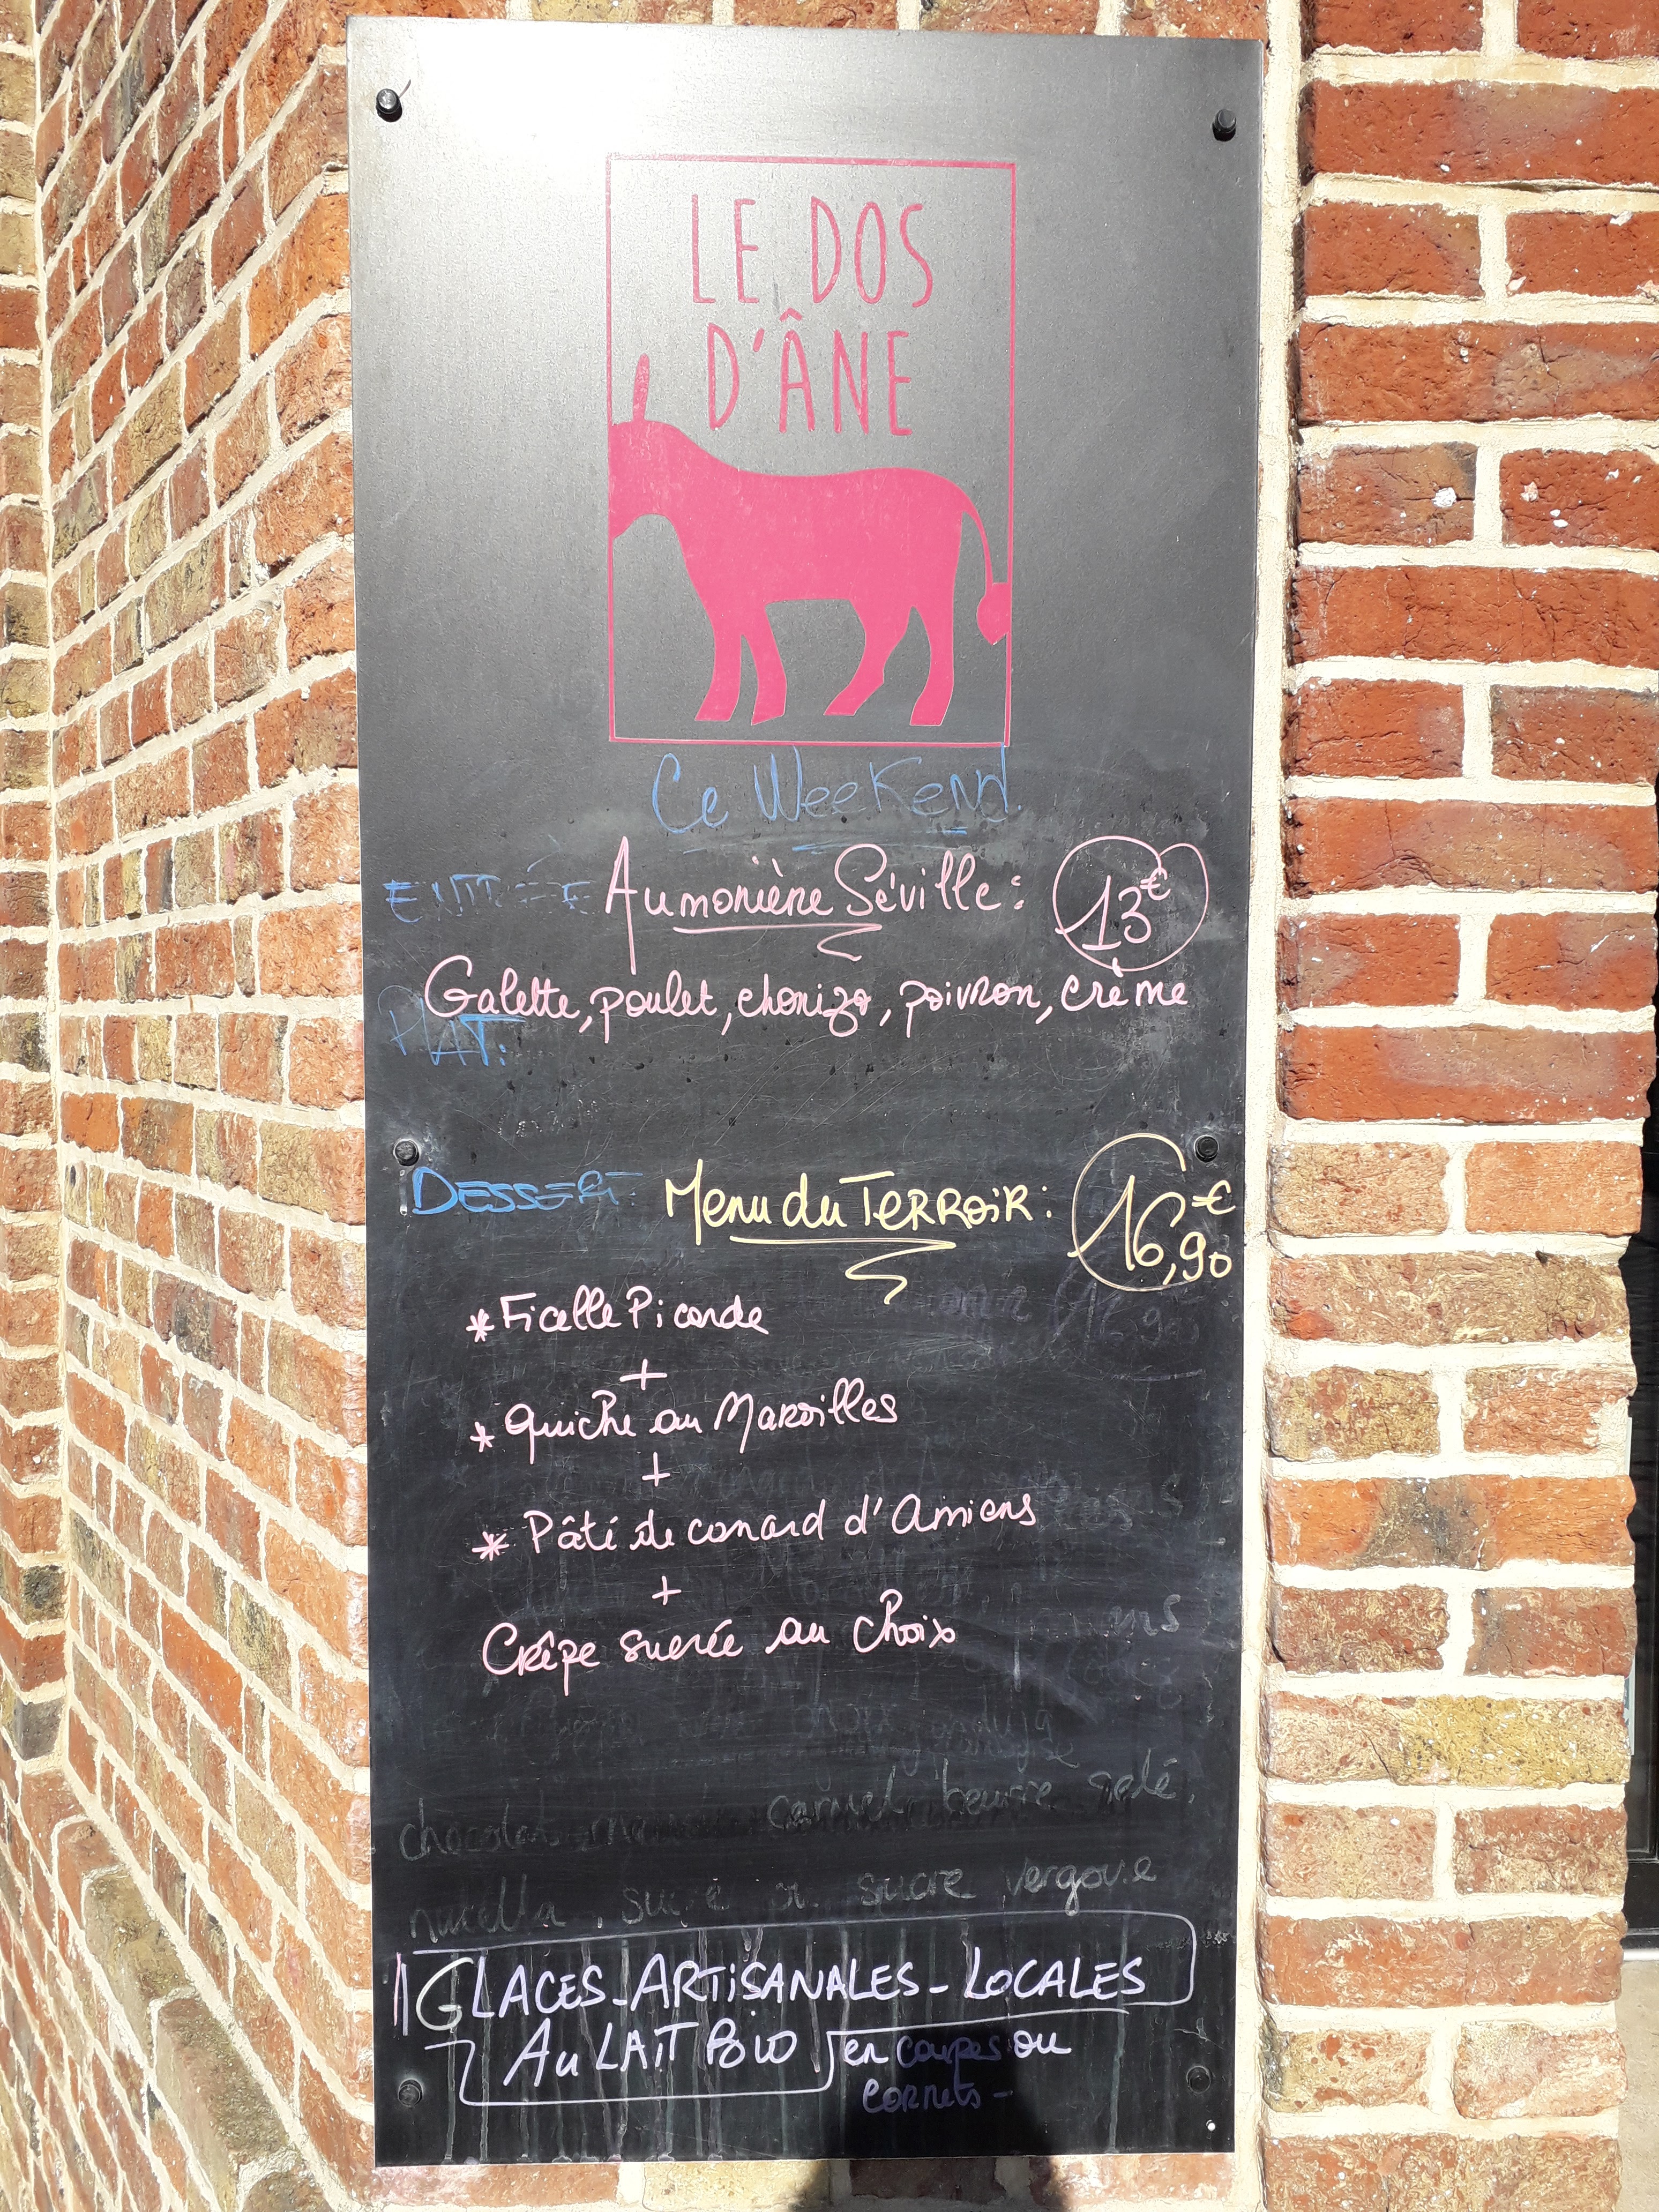 LE DOS
D'ÂNE
Ce Weekend.
ENTRÉE Aumonière Séville : 13€
Galette, poulet, chorizo, poivron, crème
PLAT:
DESSERT Menu du TERROIR : 16,90€
* Ficelle Picarde
+
* Quiche au Maroilles
+
* Pâté de canard d'Amiens
+
Crêpe sucrée au choix
beurre salé,
chocolat
nutella, sucre ou sucre vergoise
GLACES - ARTISANALES - LOCALES
Au LAIT BIO en coupes ou
cornets -